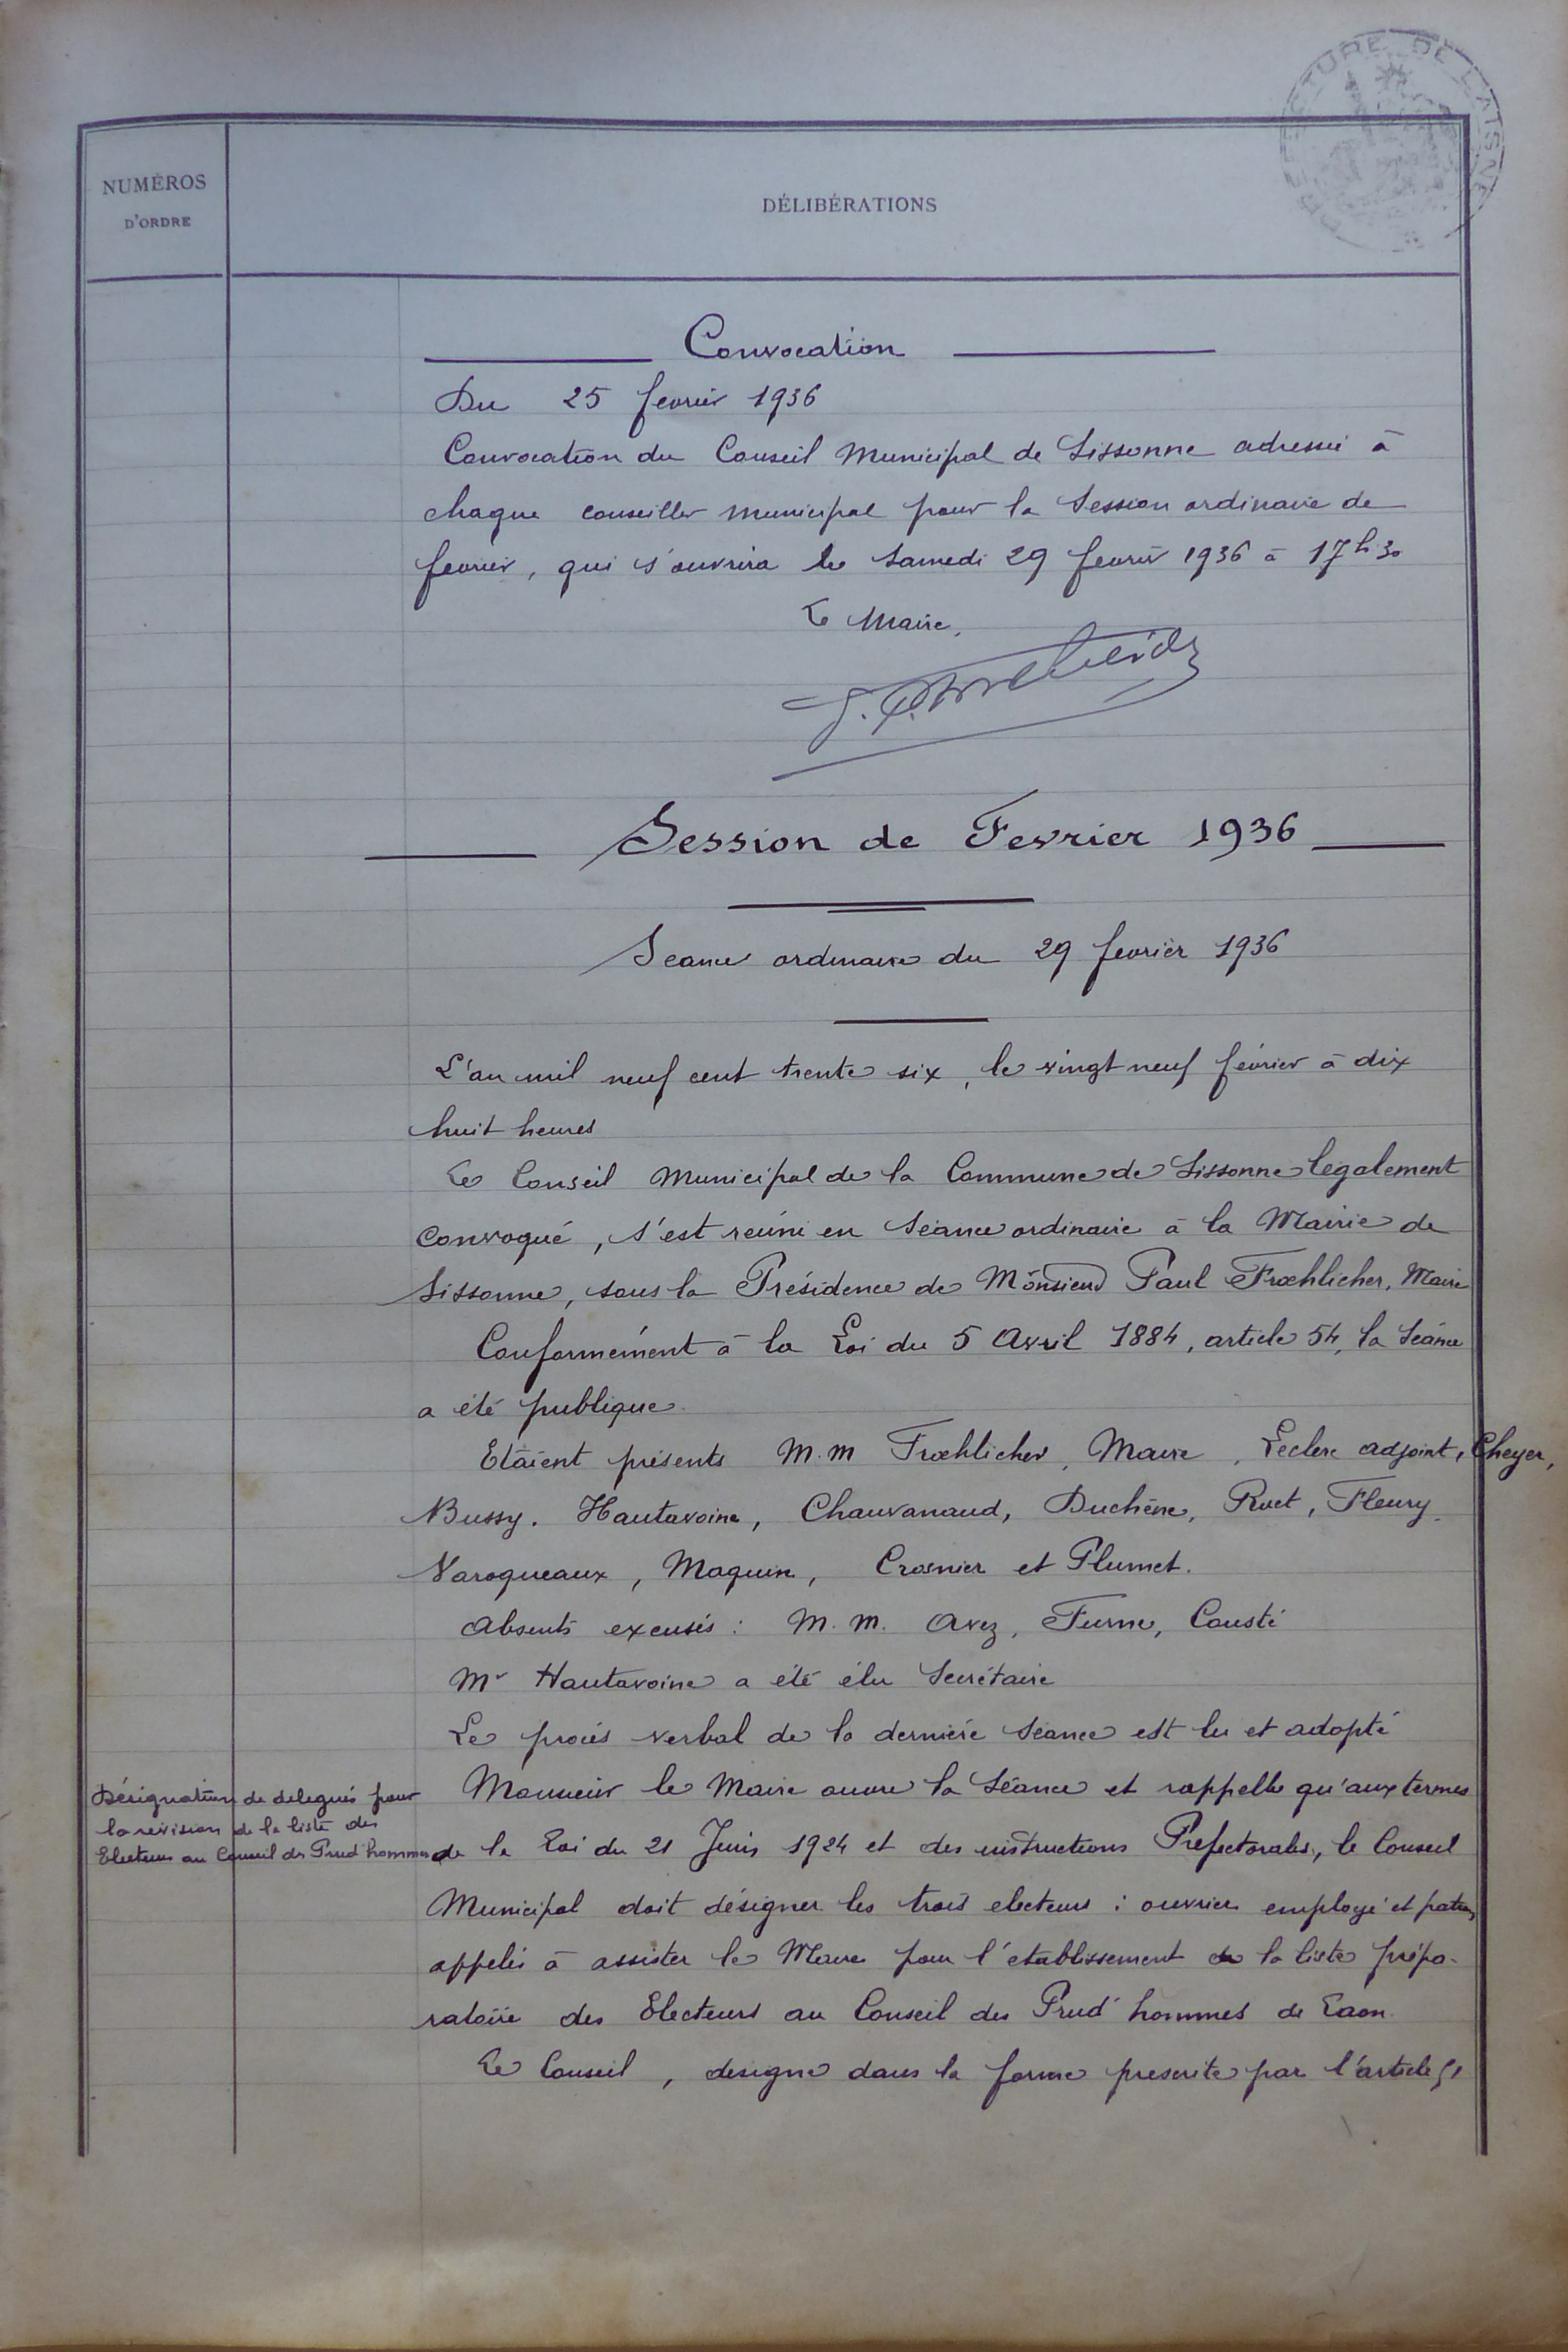 PREFECTURE DE L'AISNE
NUMÉROS
D'ORDRE
DÉLIBÉRATIONS
Convocation
Du 25 fevrier 1936
Convocation du Conseil Municipal de Sissonne adressée à
chaque conseiller municipal pour la Session ordinaire de
fevrier, qui s'ouvrira le Samedi 29 fevrier 1936 à 17h30
Le Maire,
Session de Fevrier 1936
Seance ordinaire du 29 fevrier 1936
L'an mil neuf cent trente six, le vingt neuf février à dix
huit heures
Le Conseil Municipal de la Commune de Sissonne légalement
convoqué, s'est reúni en Séance ordinaire à la Mairie de
Sissonne, sous la Présidence de Monsieur Paul Frœhlicher, Maire
Conformément à la Loi du 5 Avril 1884, article 54, la Séance
a été publique.
Etaient présents M.M Frœhlicher, Maire, Leclerc adjoint, Cheyer,
Bussy. Hautavoine, Chauvanaud, Duchêne, Ruet, Fleury.
Varoqueaux, Maquin, Crosnier et Plumet.
Absents excusés : M.M. Avez, Furne, Cousté
Mr Hautavoine a été élu Secrétaire
Le procés verbal de la dernière séance est lu et adopté
Désignation de delegués pour
la revision de la liste des
Electeurs au Conseil des Prud'hommes
Monsieur le Maire ouvre la Séance et rappelle qu'aux termes
de la Loi du 21 Juin 1924 et des instructions Prefectorales, le Conseil
Municipal doit désigner les trois electeurs : ouvrier employé et patron
appelés à assister le Maire pour l'etablissement de la liste prépa-
ratoire des Electeurs au Conseil des Prud'hommes de Laon.
Le Conseil, désigne dans la forme prescrite par l'article 51